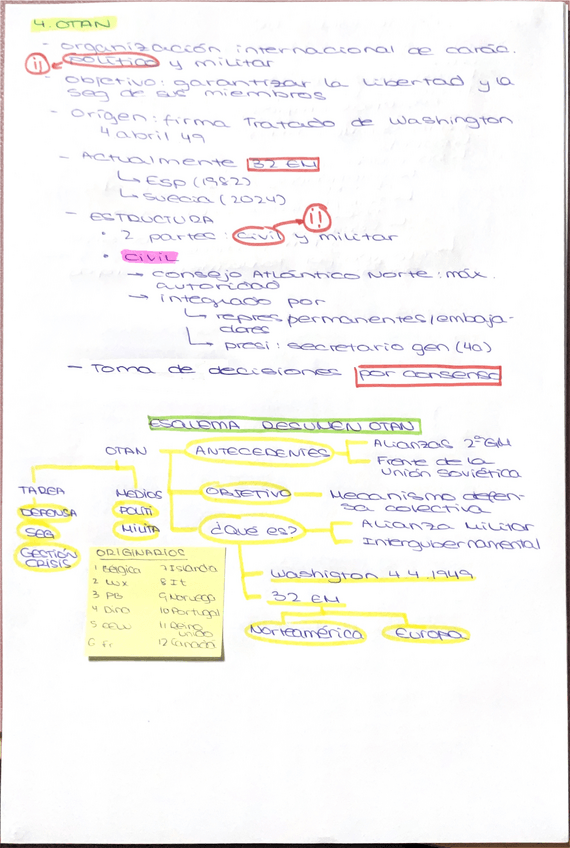 4. OTAN
- organización internacional de carác.
¡! político y militar
- objetivo: garantizar la libertad y la
seg de sus miembros
- origen: firma Tratado de Washington
4 abril 49
- Actualmente 32 EM
↳ Esp (1982)
↳ Suecia (2024)
- ESTRUCTURA
¡!
• 2 partes: civil y militar
• civil
→ consejo Atlántico Norte: máx.
autoridad
→ integrado por
↳ repres permanentes/embaja-
dores
↳ presi: secretario gen (4a)
- Toma de decisiones por consenso
ESQUEMA RESUMEN OTAN
OTAN
ANTECEDENTES
Alianzas 2ªGM
Frente de la
Unión Soviética
TAREA
DEFENSA
SEG
GESTIÓN
CRISIS
MEDIOS
POLITI
MILITA
OBJETIVO
Mecanismo defen-
sa colectiva
¿Qué es?
Alianza Militar
Intergubernamental
Washigton 4.4.1949
32 EM
Norteamérica
Europa
ORIGINARIOS
1 Bélgica 7 Islandia
2 Lux 8 It
3 PB 9 Noruego
4 Dina 10 Portugal
5 EEUU 11 Reino
unido
6 Fr 12 Canadá